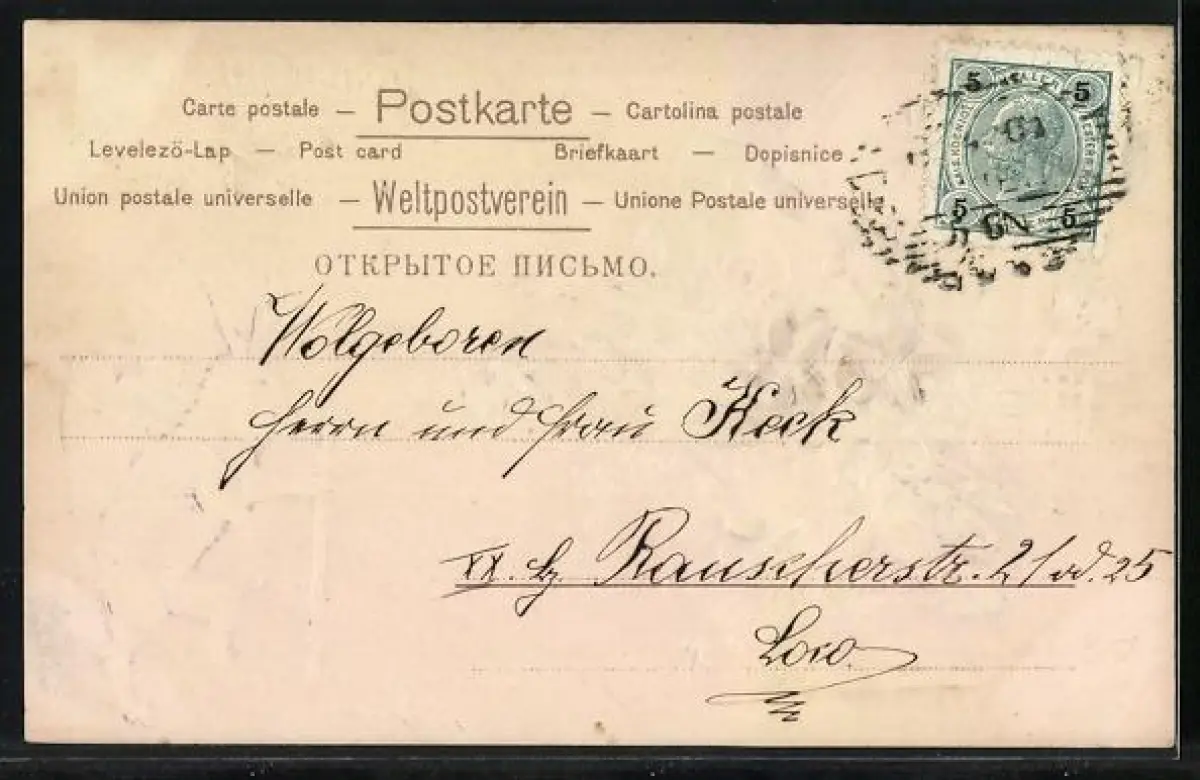 Carte postale — Postkarte — Cartolina postale
Levelezö-Lap — Post card Briefkaart — Dopisnice
Union postale universelle — Weltpostverein — Unione Postale universelle
ОТКРЫТОЕ ПИСЬМО.
5 5
5 5
Wolgeboren
Herrn und Frau Keck
XX. Bz. Rauscherstr. 21 od. 25
Loco